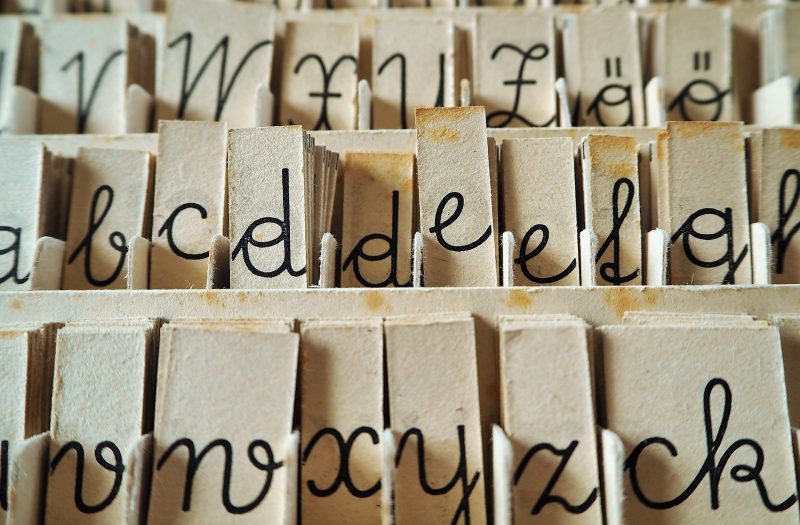 V W X Y Z ä ö
a b c d d e e f g h
v w x y z ck